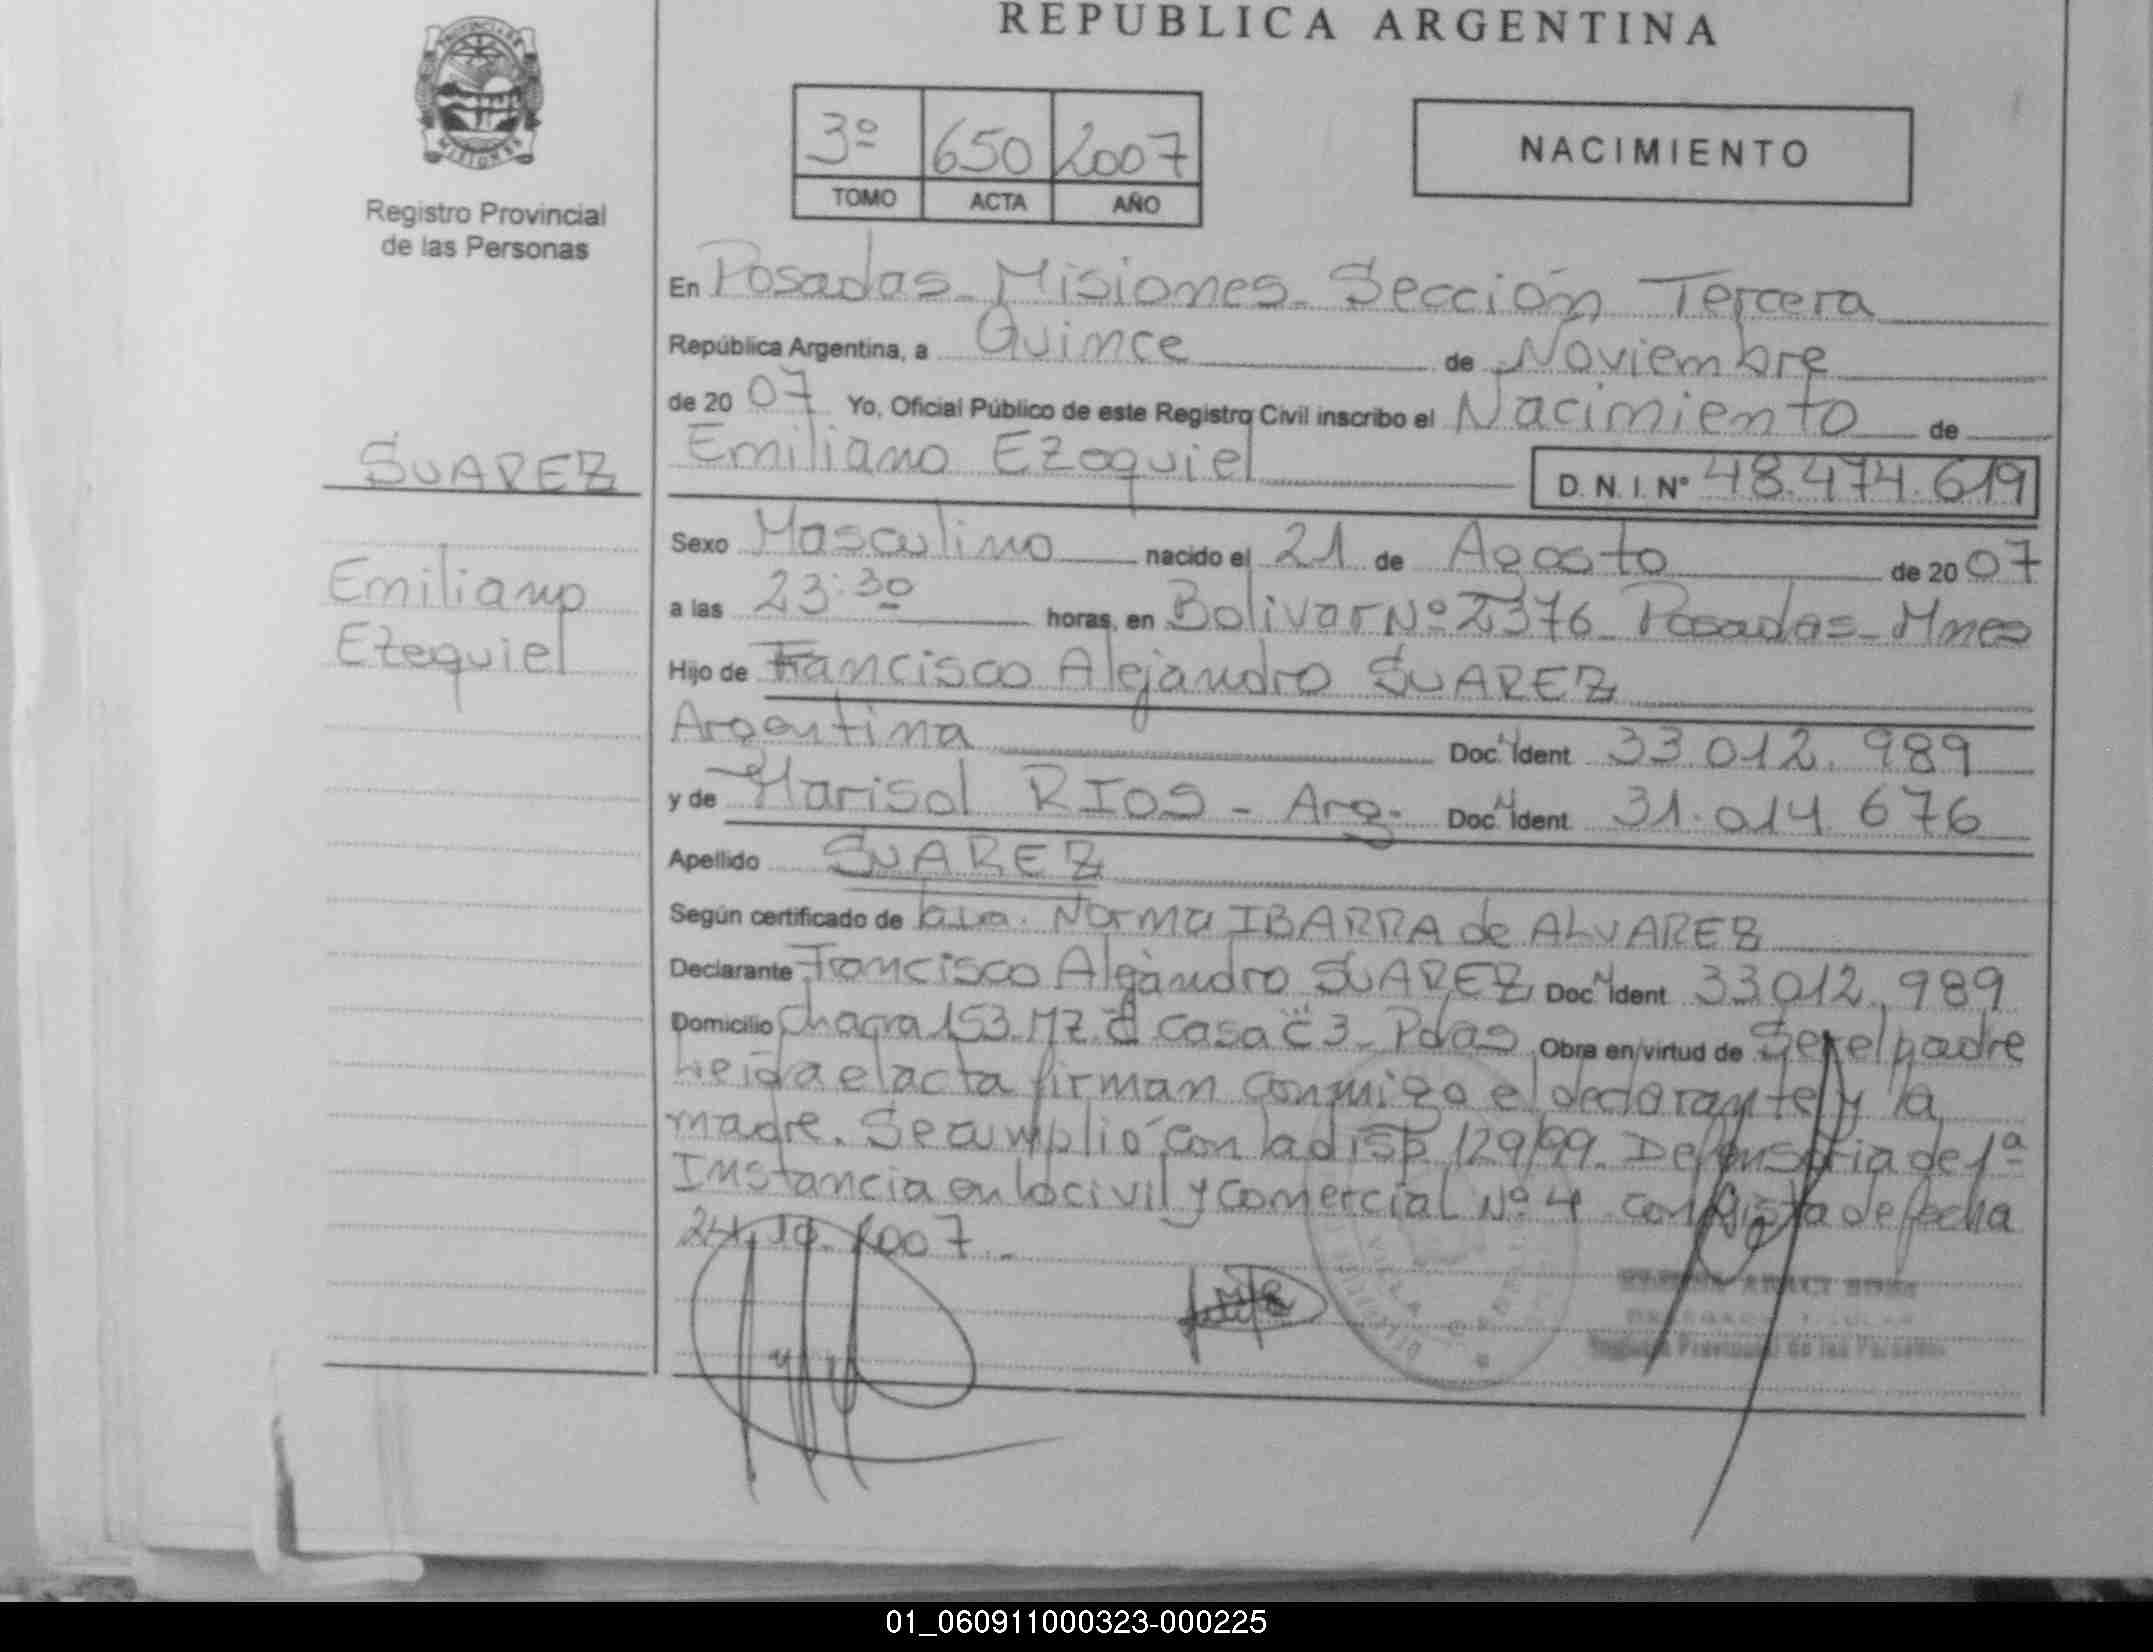 REPUBLICA ARGENTINA
PROVINCIA DE
MISIONES
Registro Provincial
de las Personas
3º 650 2007
TOMO ACTA AÑO
NACIMIENTO
En Posadas - Misiones - Sección Tercera
República Argentina, a Quince de Noviembre
de 20 07 Yo, Oficial Público de este Registro Civil inscribo el Nacimiento de
Emiliano Ezequiel D.N.I. Nº 48.474.619
SUAREZ
Emiliano
Ezequiel
Sexo Masculino nacido el 21 de Agosto de 20 07
a las 23:30 horas, en Bolivar Nº 2376 Posadas - Mnes
Hijo de Francisco Alejandro SUAREZ
Argentina Doc. Ident 33.012.989
y de Marisol RIOS - Arg. Doc. Ident 31.014 676
Apellido SUAREZ
Según certificado de Norma IBARRA de ALVAREZ
Declarante Francisco Alejandro SUAREZ Doc. Ident 33.012.989
Domicilio Chacra 153 Mz. Casa 3 - Pdas Obra en virtud de Ser el padre
Leida el acta firman conmigo el declarante y la
madre. Se cumplió con la disp 129/99. Defensoria de 1ª
Instancia en lo civil y comercial Nº 4 con vista de fecha
24.10.2007.
Registro Provincial de las Personas
01_060911000323-000225